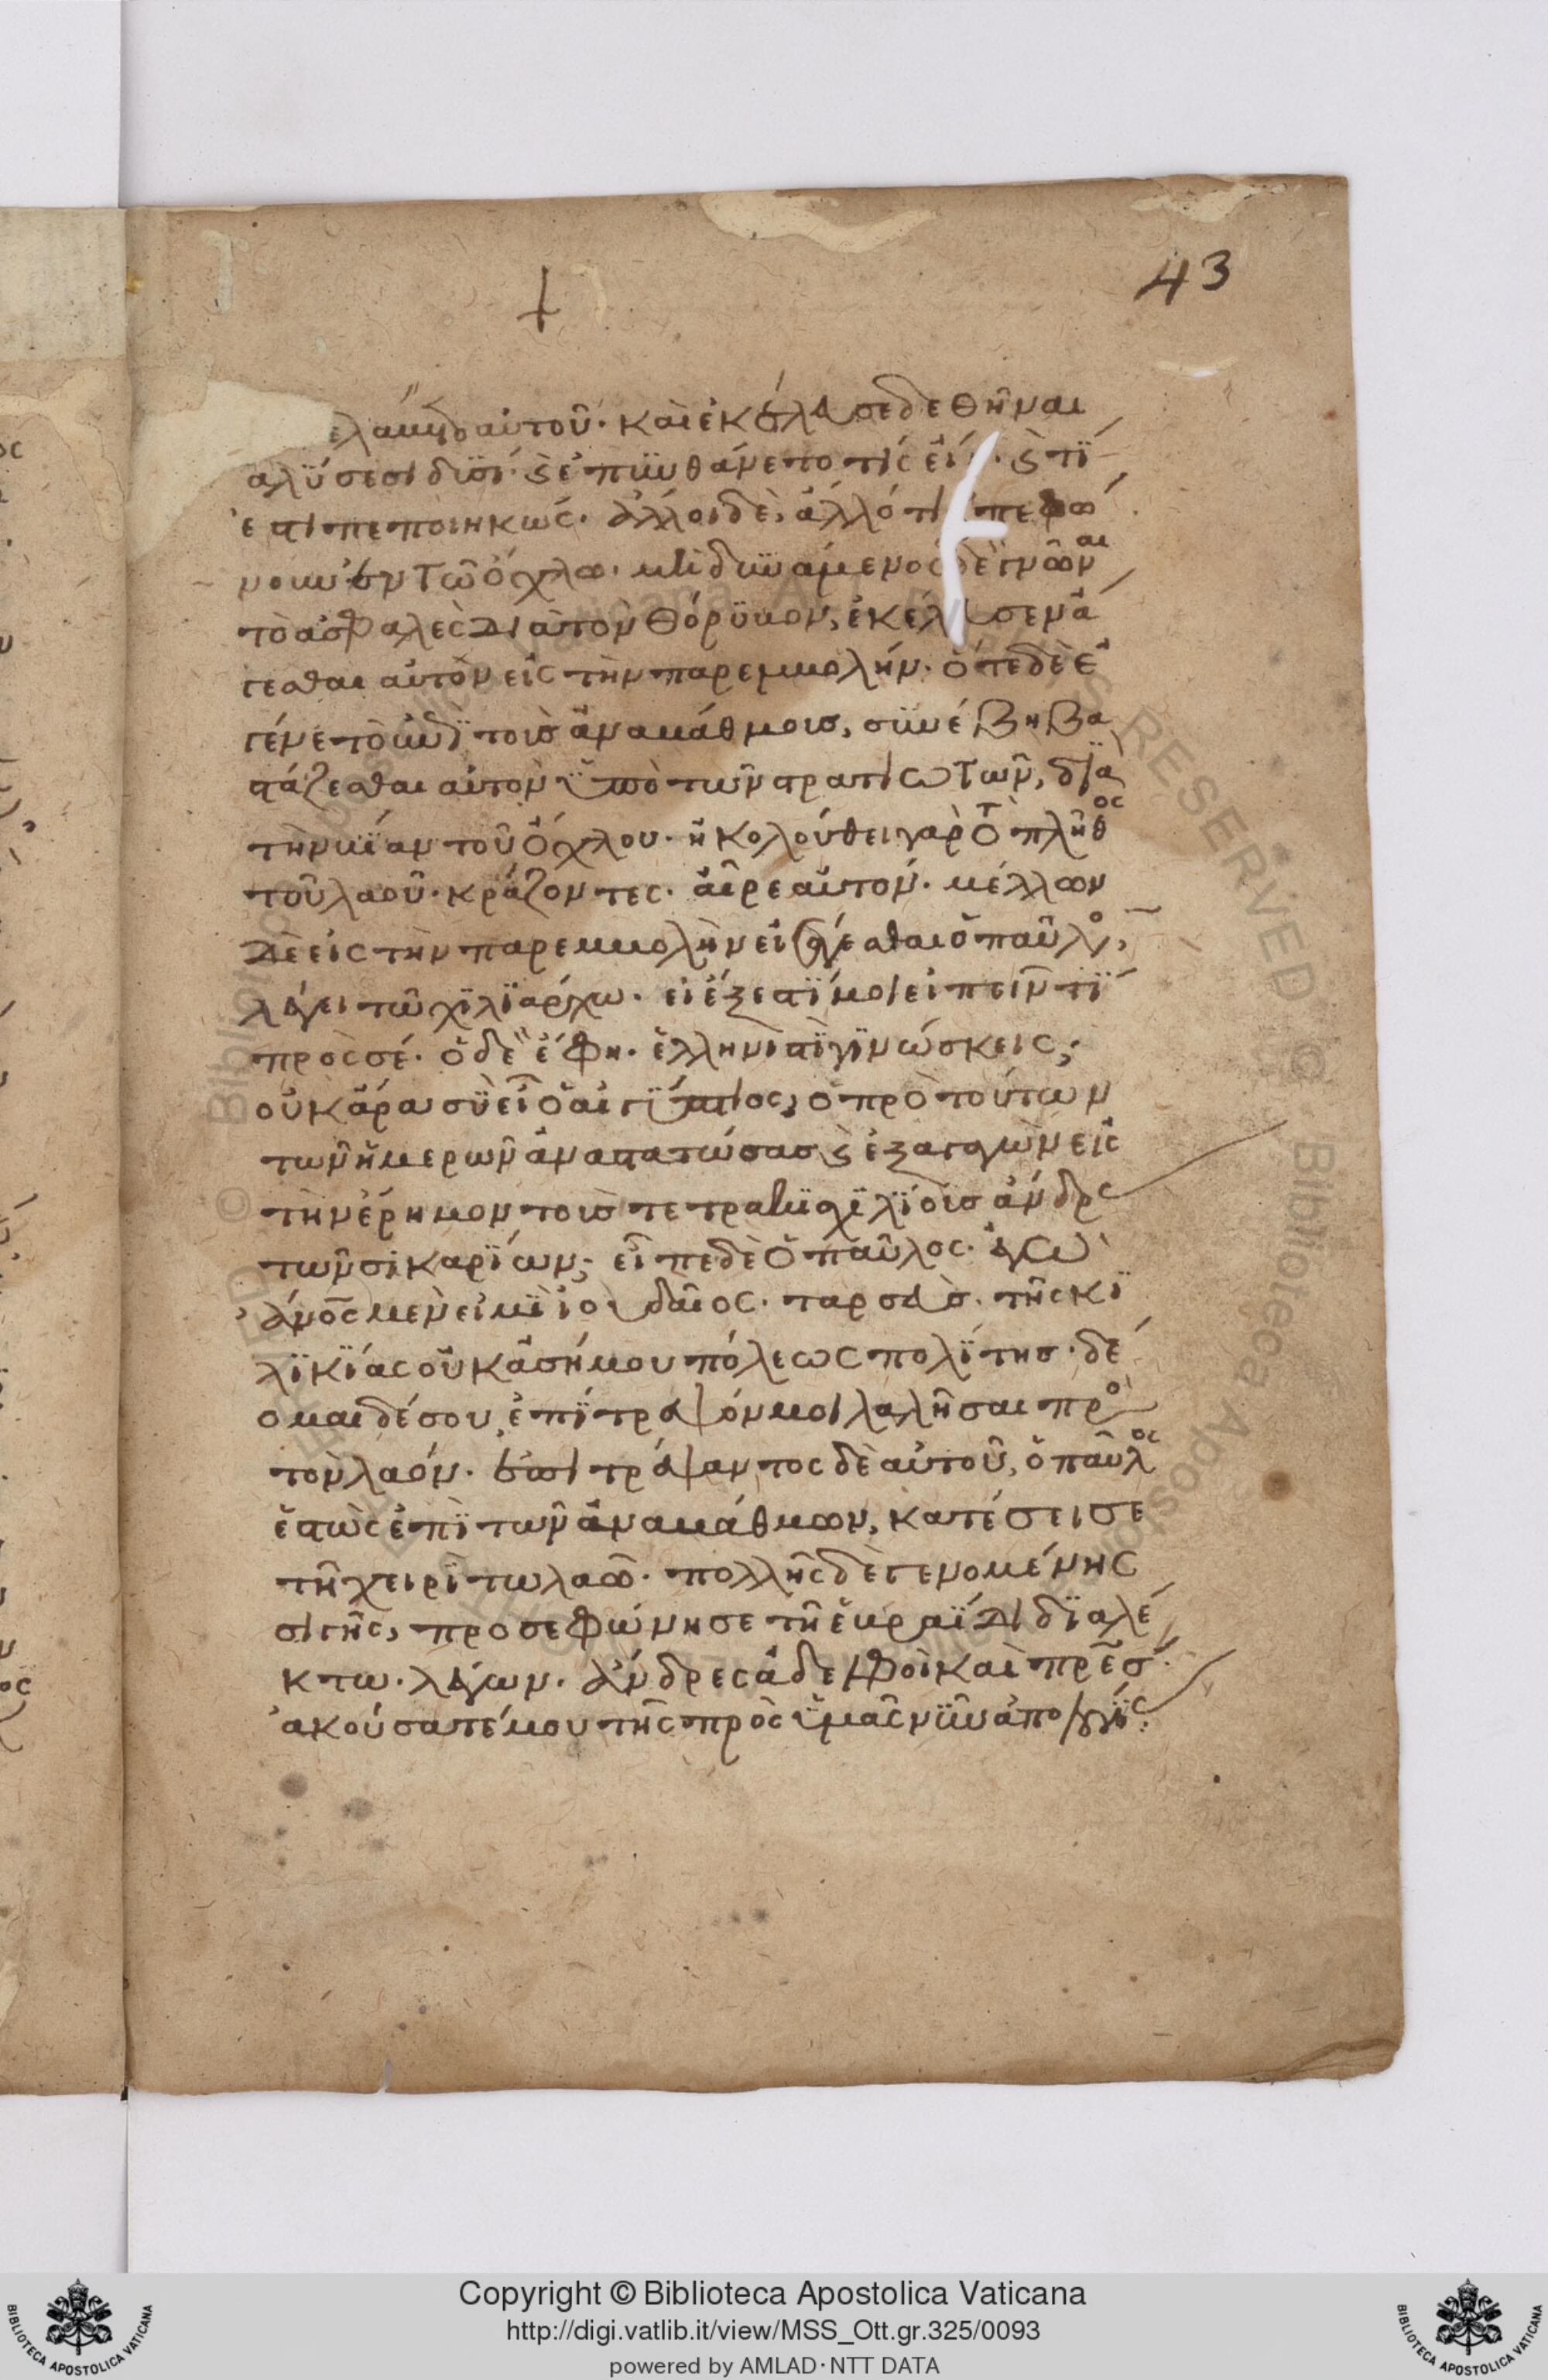 43
ἐλάβετο αὐτοῦ· καὶ ἐκέλευσε δεθῆναι
αλύσεσι δυσί· ϗ ἐπυνθάνετο τίς εἴη· ϗ τί
ἐστι πεποιηκώς· ἄλλοι δὲ, ἄλλό τι ἐπεφώ
νουν ἐν τῶ ὄχλω· μὴ δυνάμενος δὲ γνῶναι
τὸ ἀσφαλὲς διὰ τὸν θόρυβον, ἐκέλευσεν ἄ
γεσθαι αὐτὸν εἰς τὴν παρεμβολήν· ὅτε δὲ ἐ
γένετο ἐπὶ τοὺς ἀναβάθμους, συνέβη βα
στάζεσθαι αὐτὸν ὑπὸ τῶν στρατιωτῶν, διὰ
τὴν βίαν τοῦ ὄχλου· ἠκολούθει γὰρ τὸ πλῆθος
τοῦ λαοῦ· κράζοντες· αἶρε αὐτόν· μέλλων
δὲ εἰς τὴν παρεμβολὴν εἰσάγεσθαι ὁ παῦλος,
λέγει τῶ χιλιάρχω· εἰ ἔξεστί μοι εἰπεῖν τί
πρὸς σέ· ὁ δὲ ἔφη· ἑλληνιστὶ γινώσκεις;
οὐκ ἄρα σὺ εἶ ὁ αἰγύπτιος, ὁ πρὸ τούτων
τῶν ἡμερῶν ἀναστατώσας ϗ ἐξαγαγὼν εἰς
τὴν ἔρημον τοὺς τετρακισχιλίους ἄνδρς
τῶν σικαρίων; εἶπε δὲ ὁ παῦλος· ἐγὼ
ἀνος μέν εἰμι ἰουδαῖος· ταρσεὺς· τῆς κι
λικίας οὐκ ἀσήμου πόλεως πολίτης· δέ
ομαι δέ σου, ἐπίτρεψόν μοι λαλῆσαι πρὸς
τὸν λαόν· ἐπιτρέψαντος δὲ αὐτοῦ, ὁ παῦλος
ἑστὼς ἐπὶ τῶν ἀναβάθμων, κατέσεισε
τῆ χειρὶ τῶ λαῶ· πολλῆς δὲ γενομένης
σιγῆς, προσεφώνησε τῆ ἑβραΐδι διαλέ
κτω· λέγων· ἄνδρες ἀδελφοὶ καὶ πρες·
ἀκούσατέ μου τῆς πρὸς ὑμᾶς νῦν ἀπολογίας:
Copyright © Biblioteca Apostolica Vaticana
http://digi.vatlib.it/view/MSS_Ott.gr.325/0093
powered by AMLAD·NTT DATA
BIBLIOTECA APOSTOLICA VATICANA
BIBLIOTECA APOSTOLICA VATICANA